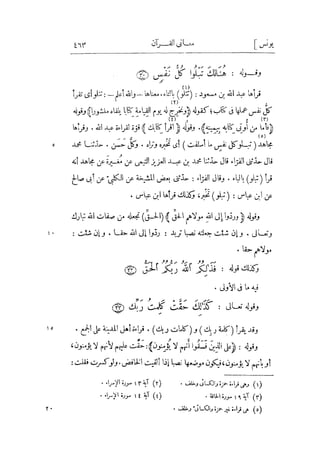 يونس ] معانى القرآن ٤٦٣
وقوله : هُنَالِكَ تَبْلُوا كُلُّ نَفْسٍ (٣٠)
قرأها عبد الله بن مسعود : ( تتلو ) بالتاء. معناها — والله أعلم — : تتلو أى تقرأ (١)
كلّ نفس عملها فى كتاب ؛ كقوله ﴿ ونُخرج له يوم القيامة كتابا يلقاه منشورا ﴾ وقوله (٢)
﴿ فأما من أوتى كتابه بيمينه ﴾ . وقوله ﴿ اقرأ كتابك ﴾ قوّة لقراءة عبد الله . وقرأها (٣) (٤)
مجاهد ( تبلو كل نفس ما أسلفت ) أى تخبره وتراه . وكلّ حسن . حدّثنا محمد ٥ (٥)
قال حدّثنى الفرّاء قال حدّثنا محمد بن عبد العزيز التيمى عن مُغيرة عن مجاهد أنه
قرأ ( تبلو ) بالباء . وقال الفرّاء : حدّثنى بعض المشيخة عن الكلبىّ عن أبى صالح
عن ابن عباس : ( تبلو ) تخبر ، وكذلك قرأها ابن عباس .
وقوله ﴿ وردّوا إلى الله مولاهم الحق ﴾ ( الحقّ ) تجعله من صفات الله تبارك
وتعالى . وإن شئت جعلته نصبا تريد : ردّوا إلى الله حقا . وإن شئت : ١٠
مولاهم حقا .
وكذلك قوله : فَذَٰلِكُمُ اللَّهُ رَبُّكُمُ الْحَقُّ (٣٢)
فيه ما فى الأولى .
وقوله تعالى : كَذَٰلِكَ حَقَّتْ كَلِمَتُ رَبِّكَ (٣٣)
وقد يقرأ ( كلمة ربك ) و ( كلمات ربك ) . قراءة أهل المدينة على الجمع . ١٥
وقوله : ﴿ على الذين فسقوا أنهم لا يؤمنون ﴾ : حقّت عليهم لأنهم لا يؤمنون ،
أو بأنهم لا يؤمنون ، فيكون موضعها نصبا إذا ألقيت الخافض . ولو كسرت فقلت :
(١) وهى قراءة حمزة والكسائى وخلف . (٢) آية ١٣ سورة الإسراء .
(٣) آية ١٩ سورة الحاقة . (٤) آية ١٤ سورة الإسراء .
(٥) هى قراءة غير حمزة والكسائى وخلف . ٢٠